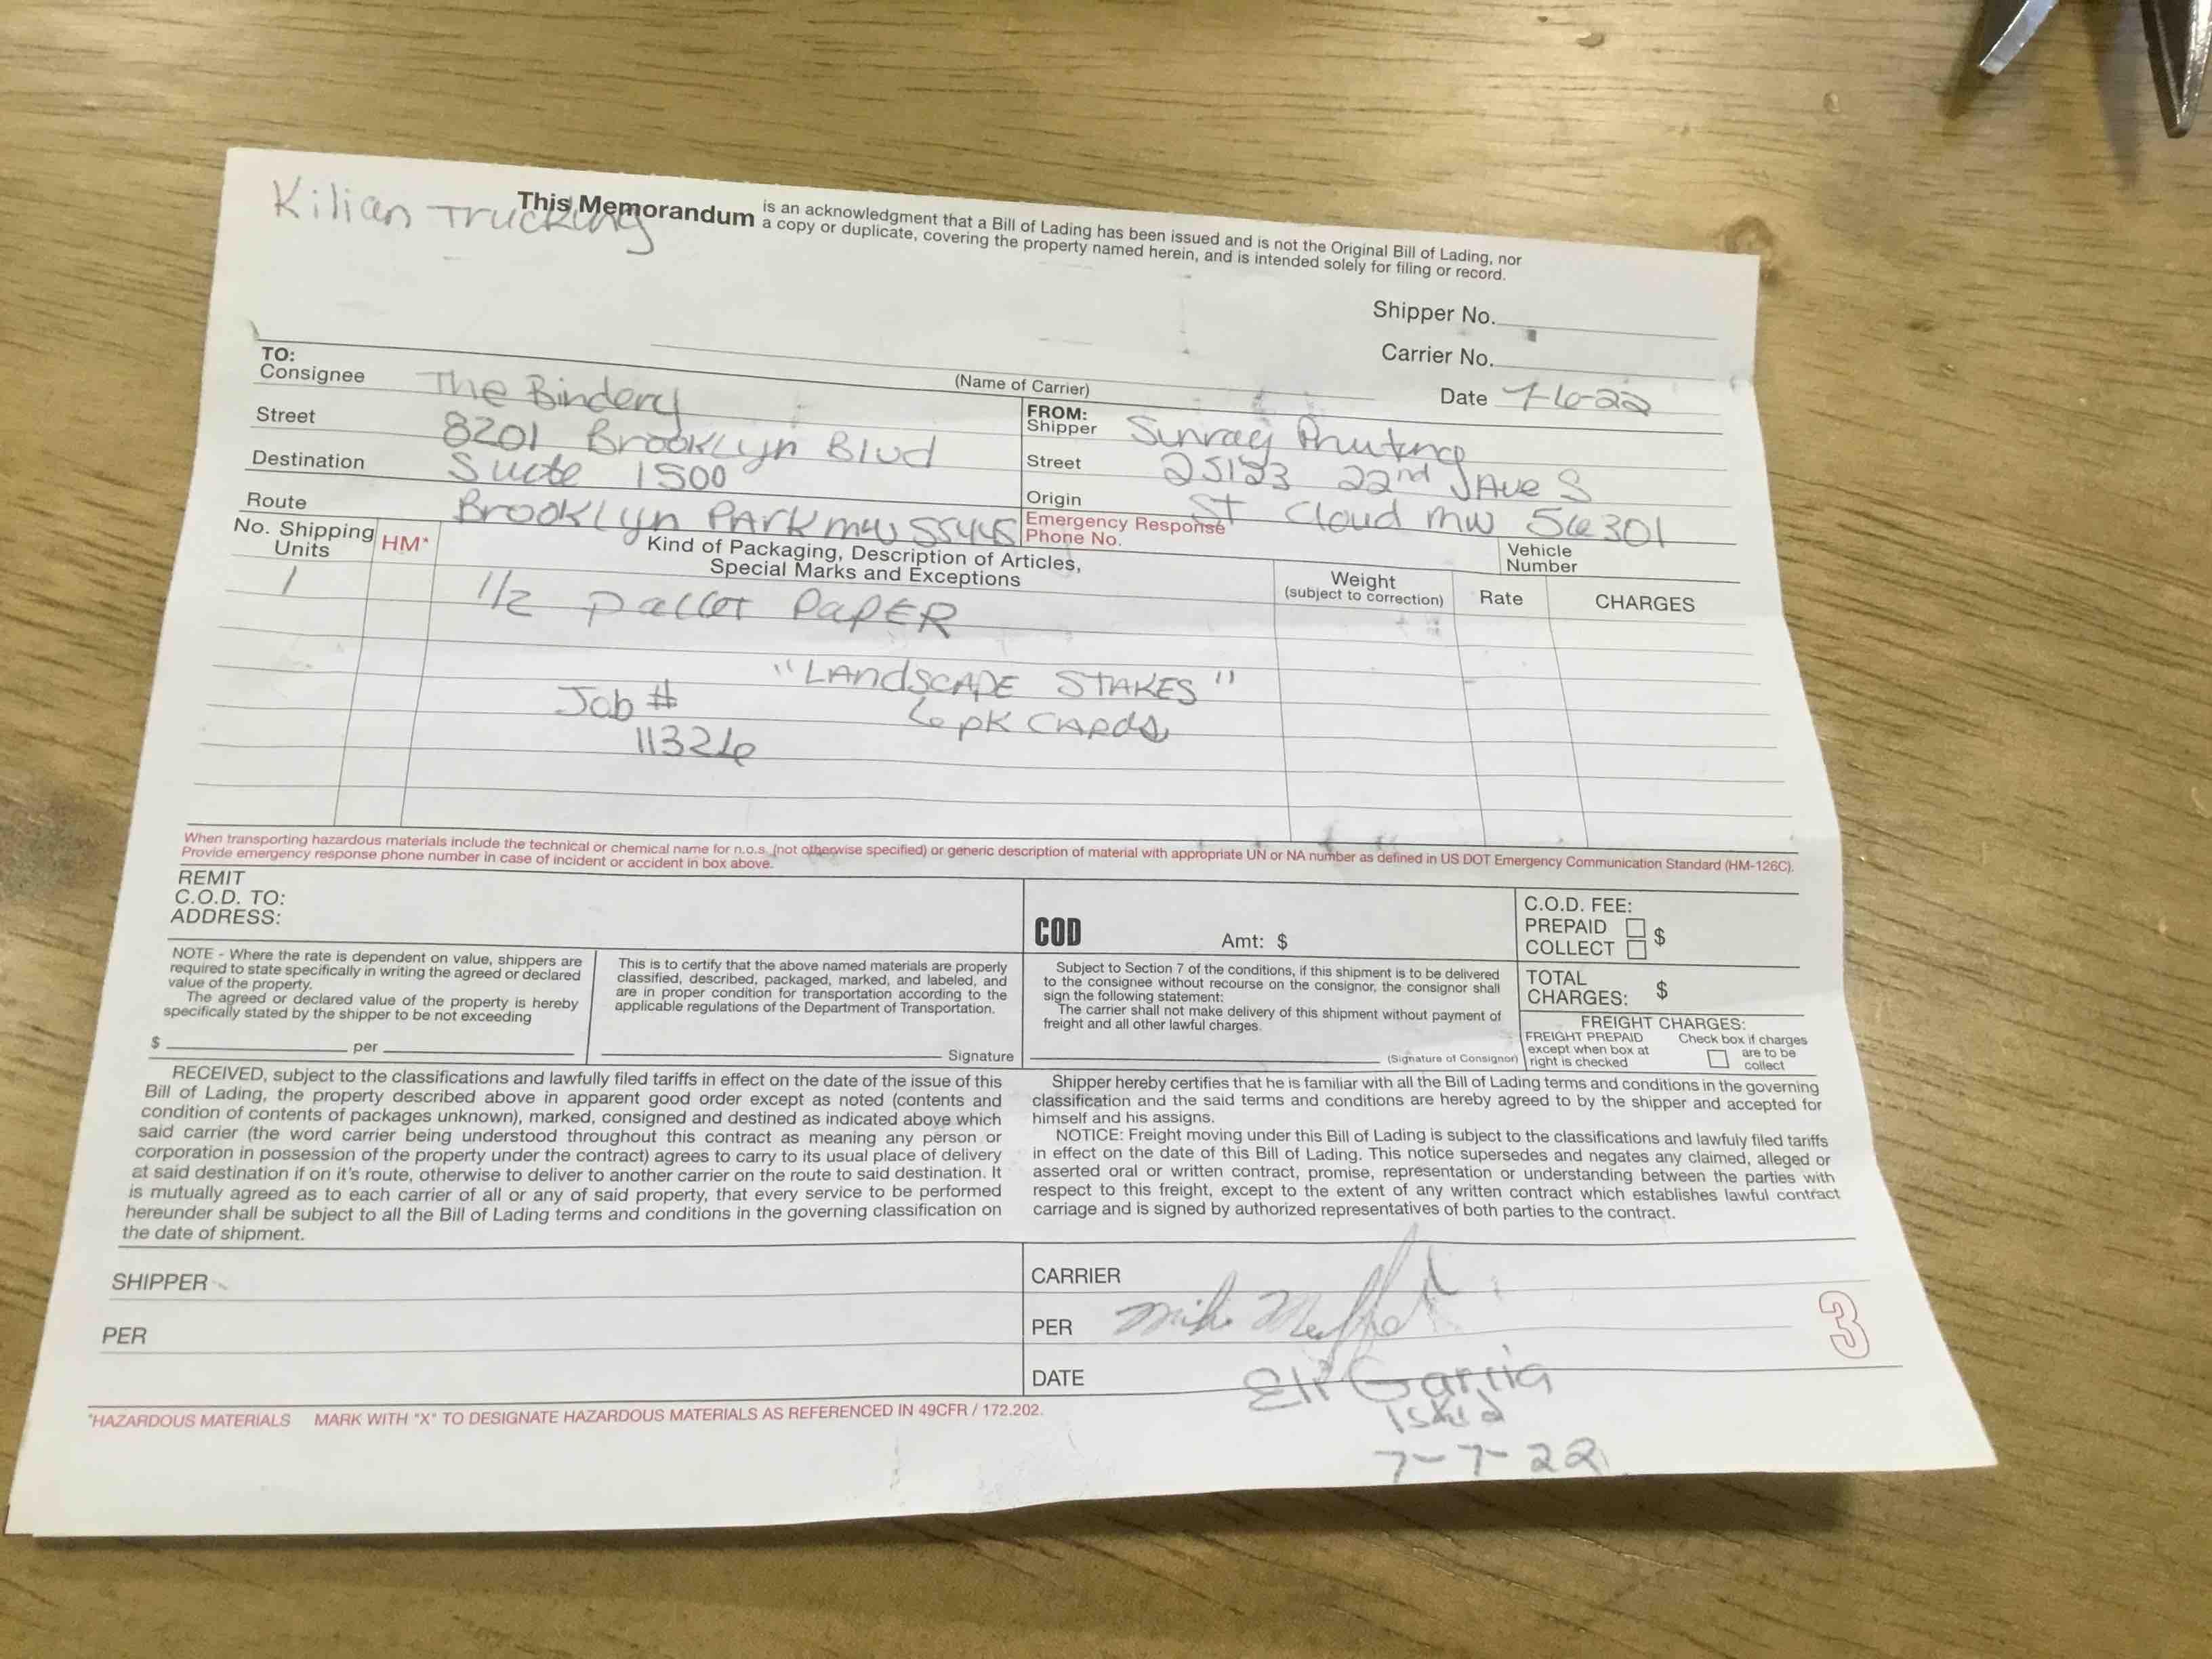 Kilian Trucking
This Memorandum is an acknowledgment that a Bill of Lading has been issued and is not the Original Bill of Lading, nor
a copy or duplicate, covering the property named herein, and is intended solely for filing or record.
Shipper No.
Carrier No.
(Name of Carrier)
Date 7-6-22
TO:
Consignee The Bindery
Street 8201 Brooklyn Blvd
Destination Suite 1500
Route Brooklyn Park MN 55445
FROM:
Shipper Sunray Printing
Street 25123 22nd Ave S
Origin St Cloud MN 56301
Emergency Response
Phone No.
Vehicle
Number
No. Shipping
Units
HM*
Kind of Packaging, Description of Articles,
Special Marks and Exceptions
Weight
(subject to correction)
Rate
CHARGES
1 1/2 Pallet PAPER
"LANDSCAPE STAKES"
Job # 6pk CARDS
11326
When transporting hazardous materials include the technical or chemical name for n.o.s. (not otherwise specified) or generic description of material with appropriate UN or NA number as defined in US DOT Emergency Communication Standard (HM-126C).
Provide emergency response phone number in case of incident or accident in box above.
REMIT
C.O.D. TO:
ADDRESS:
COD Amt: $
C.O.D. FEE:
PREPAID
COLLECT $
NOTE - Where the rate is dependent on value, shippers are
required to state specifically in writing the agreed or declared
value of the property.
The agreed or declared value of the property is hereby
specifically stated by the shipper to be not exceeding
$ per
This is to certify that the above named materials are properly
classified, described, packaged, marked, and labeled, and
are in proper condition for transportation according to the
applicable regulations of the Department of Transportation.
Signature
Subject to Section 7 of the conditions, if this shipment is to be delivered
to the consignee without recourse on the consignor, the consignor shall
sign the following statement:
The carrier shall not make delivery of this shipment without payment of
freight and all other lawful charges.
(Signature of Consignor)
TOTAL
CHARGES: $
FREIGHT CHARGES:
FREIGHT PREPAID
except when box at
right is checked
Check box if charges
are to be
collect
RECEIVED, subject to the classifications and lawfully filed tariffs in effect on the date of the issue of this
Bill of Lading, the property described above in apparent good order except as noted (contents and
condition of contents of packages unknown), marked, consigned and destined as indicated above which
said carrier (the word carrier being understood throughout this contract as meaning any person or
corporation in possession of the property under the contract) agrees to carry to its usual place of delivery
at said destination if on it's route, otherwise to deliver to another carrier on the route to said destination. It
is mutually agreed as to each carrier of all or any of said property, that every service to be performed
hereunder shall be subject to all the Bill of Lading terms and conditions in the governing classification on
the date of shipment.
Shipper hereby certifies that he is familiar with all the Bill of Lading terms and conditions in the governing
classification and the said terms and conditions are hereby agreed to by the shipper and accepted for
himself and his assigns.
NOTICE: Freight moving under this Bill of Lading is subject to the classifications and lawfuly filed tariffs
in effect on the date of this Bill of Lading. This notice supersedes and negates any claimed, alleged or
asserted oral or written contract, promise, representation or understanding between the parties with
respect to this freight, except to the extent of any written contract which establishes lawful contract
carriage and is signed by authorized representatives of both parties to the contract.
SHIPPER
PER
CARRIER
PER Mike
DATE Eli Garcia
1 skid
7-7-22
3
*HAZARDOUS MATERIALS MARK WITH "X" TO DESIGNATE HAZARDOUS MATERIALS AS REFERENCED IN 49CFR / 172.202.